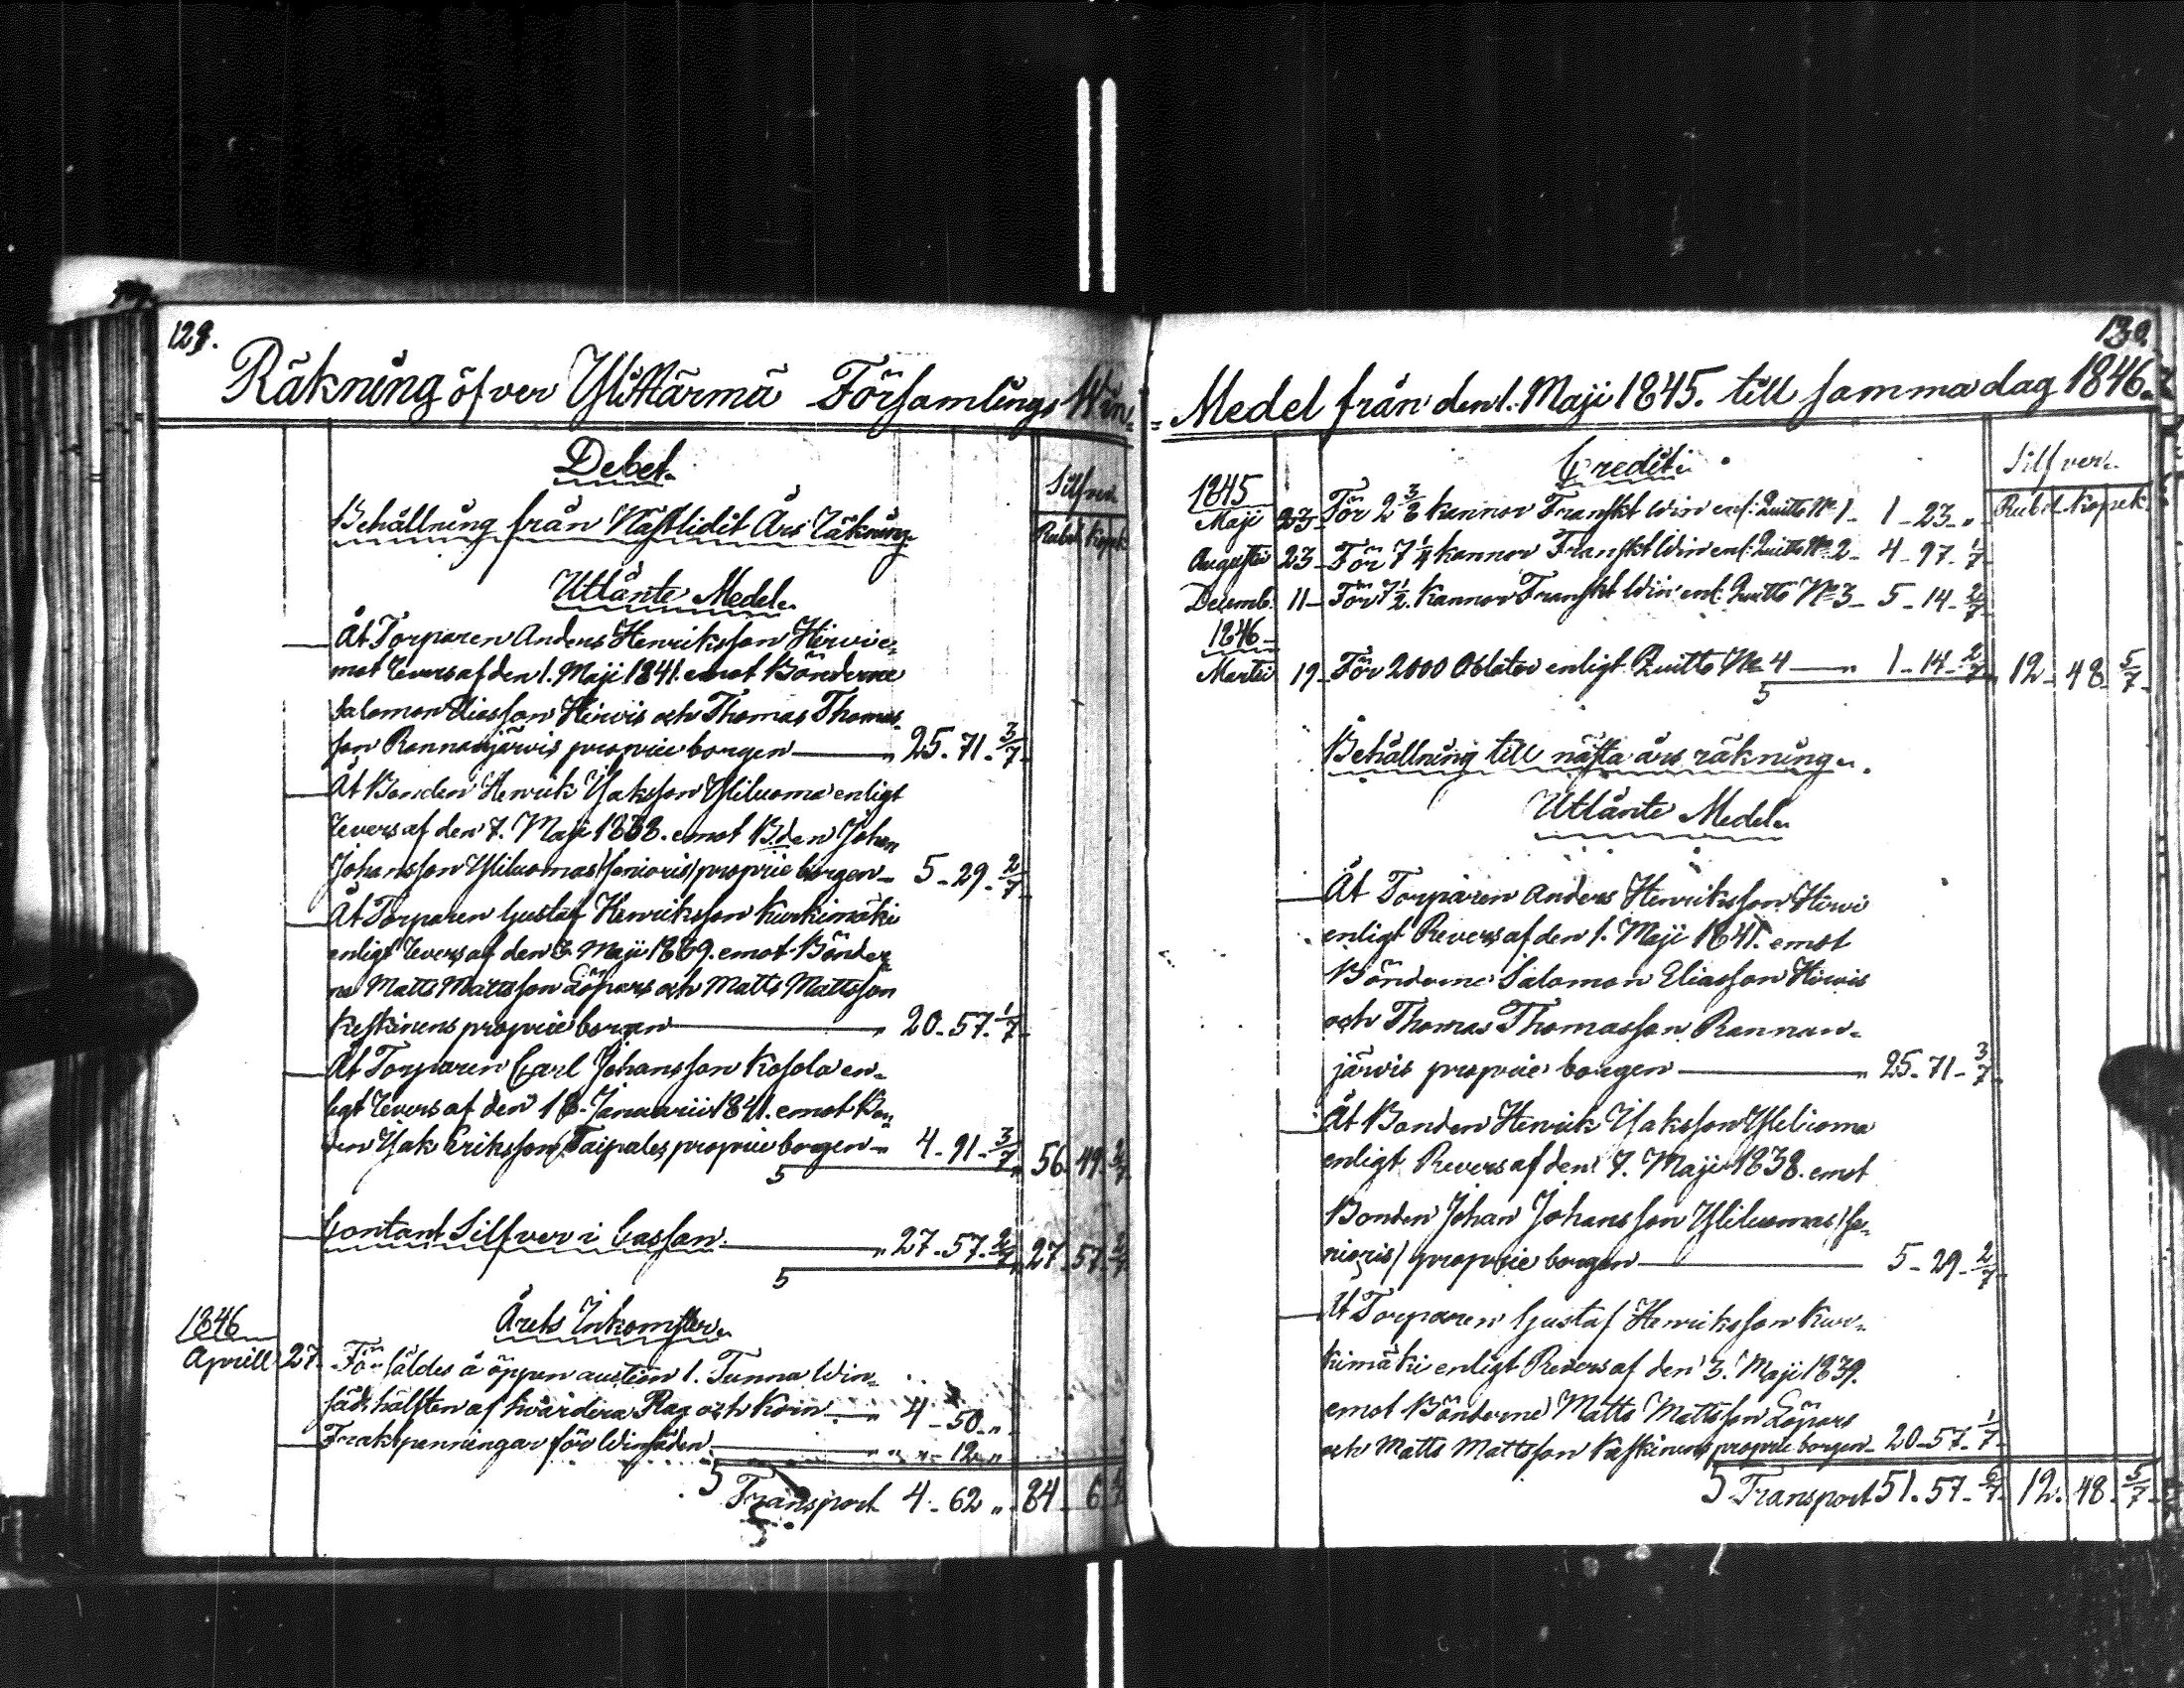 129.
Räkning öfver Ylihärmä Församlings Win-
Debet.
Silfver.
Rubel Kopek
Behållning från Nästlidit Års Räkning
Utlånte Medel.
Åt Torparen Anders Henriksson Hirvi e-
mot Revers af den 1. Maji 1841. emot Bönderne
Salomon Eliasson Hirvis och Thomas Thomas-
son Rannanjärvis proprie borgen — " 25. 71. 3/7
Åt Bonden Henrik Isaksson Yliluoma enligt
Revers af den 7. Maji 1838. emot B:den Johan
Johansson Yliluomas /senioris/ proprie borgen — 5 - 29 - 2/7
Åt Torparen Gustaf Henriksson Kurkimäki
enligt Revers af den 3. Maji 1839. emot Bönder-
ne Matts Mattsson Löpars och Matts Mattsson
Keskinens proprie borgen — " 20 - 57. 1/7
Åt Torparen Carl Johansson Kosola en-
ligt Revers af den 18. Januarii 1841. emot Bon-
den Isak Eriksson Taipales proprie borgen — " 4 - 91 - 3/7 56 49 2/7
5
Contant Silfver i Cassan. — " 27 - 57. 2/7 27 57 2/7
5
Årets Inkomster.
1846
Aprill 27. Försåldes å öppen auction 1. Tunna Win-
säd, hälften af hvardera Råg och Korn — " 4 - 50. "
Fraktpenningar för Winsäden — " " - 12 "
5 Transport 4 - 62 " 84 6 4/7
130.
Medel från den 1. Maji 1845. till samma dag 1846.
Credit.
Silfver.
Rubel Kopek.
1845
Maji 23 För 2 3/8 kannor Franskt Win enl: Quitto No 1 - 1 - 23 - "
Augusti 23 - För 7 1/4 kannor Franskt Win enl: Quitto No 2 - 4 - 97 - 1/7
Decemb. 11 - För 7 1/2. Kannor Franskt Win enl: Quitto No 3 - 5 - 14 - 2/7
1846
Martii 19 - För 2000 Oblater enligt Quitto No 4 — " 1 - 14 - 2/7 12 - 48 5/7
5
Behållning till nästa års räkning.
Utlånte Medel.
Åt Torparen Anders Henriksson Hirvi
enligt Revers af den 1. Maji 1841. emot
Bönderne Salomon Eliasson Hirvis
och Thomas Thomasson Rannan-
järvis proprie borgen — " 25 - 71 - 3/7
Åt Bonden Henrik Isaksson Yliluoma
enligt Revers af den 7. Maji 1838. emot
Bonden Johan Johansson Yliluomas /se-
nioris/ proprie borgen — 5 - 29 - 2/7
Åt Torparen Gustaf Henriksson Kur-
kimäki enligt Revers af den 3. Maji 1839.
emot Bönderne Matts Mattsson Löpars
och Matts Mattsson Keskinens proprie borgen - 20 - 57 - 1/7
5 Transport 51 - 57 - 6/7 12. 48 5/7